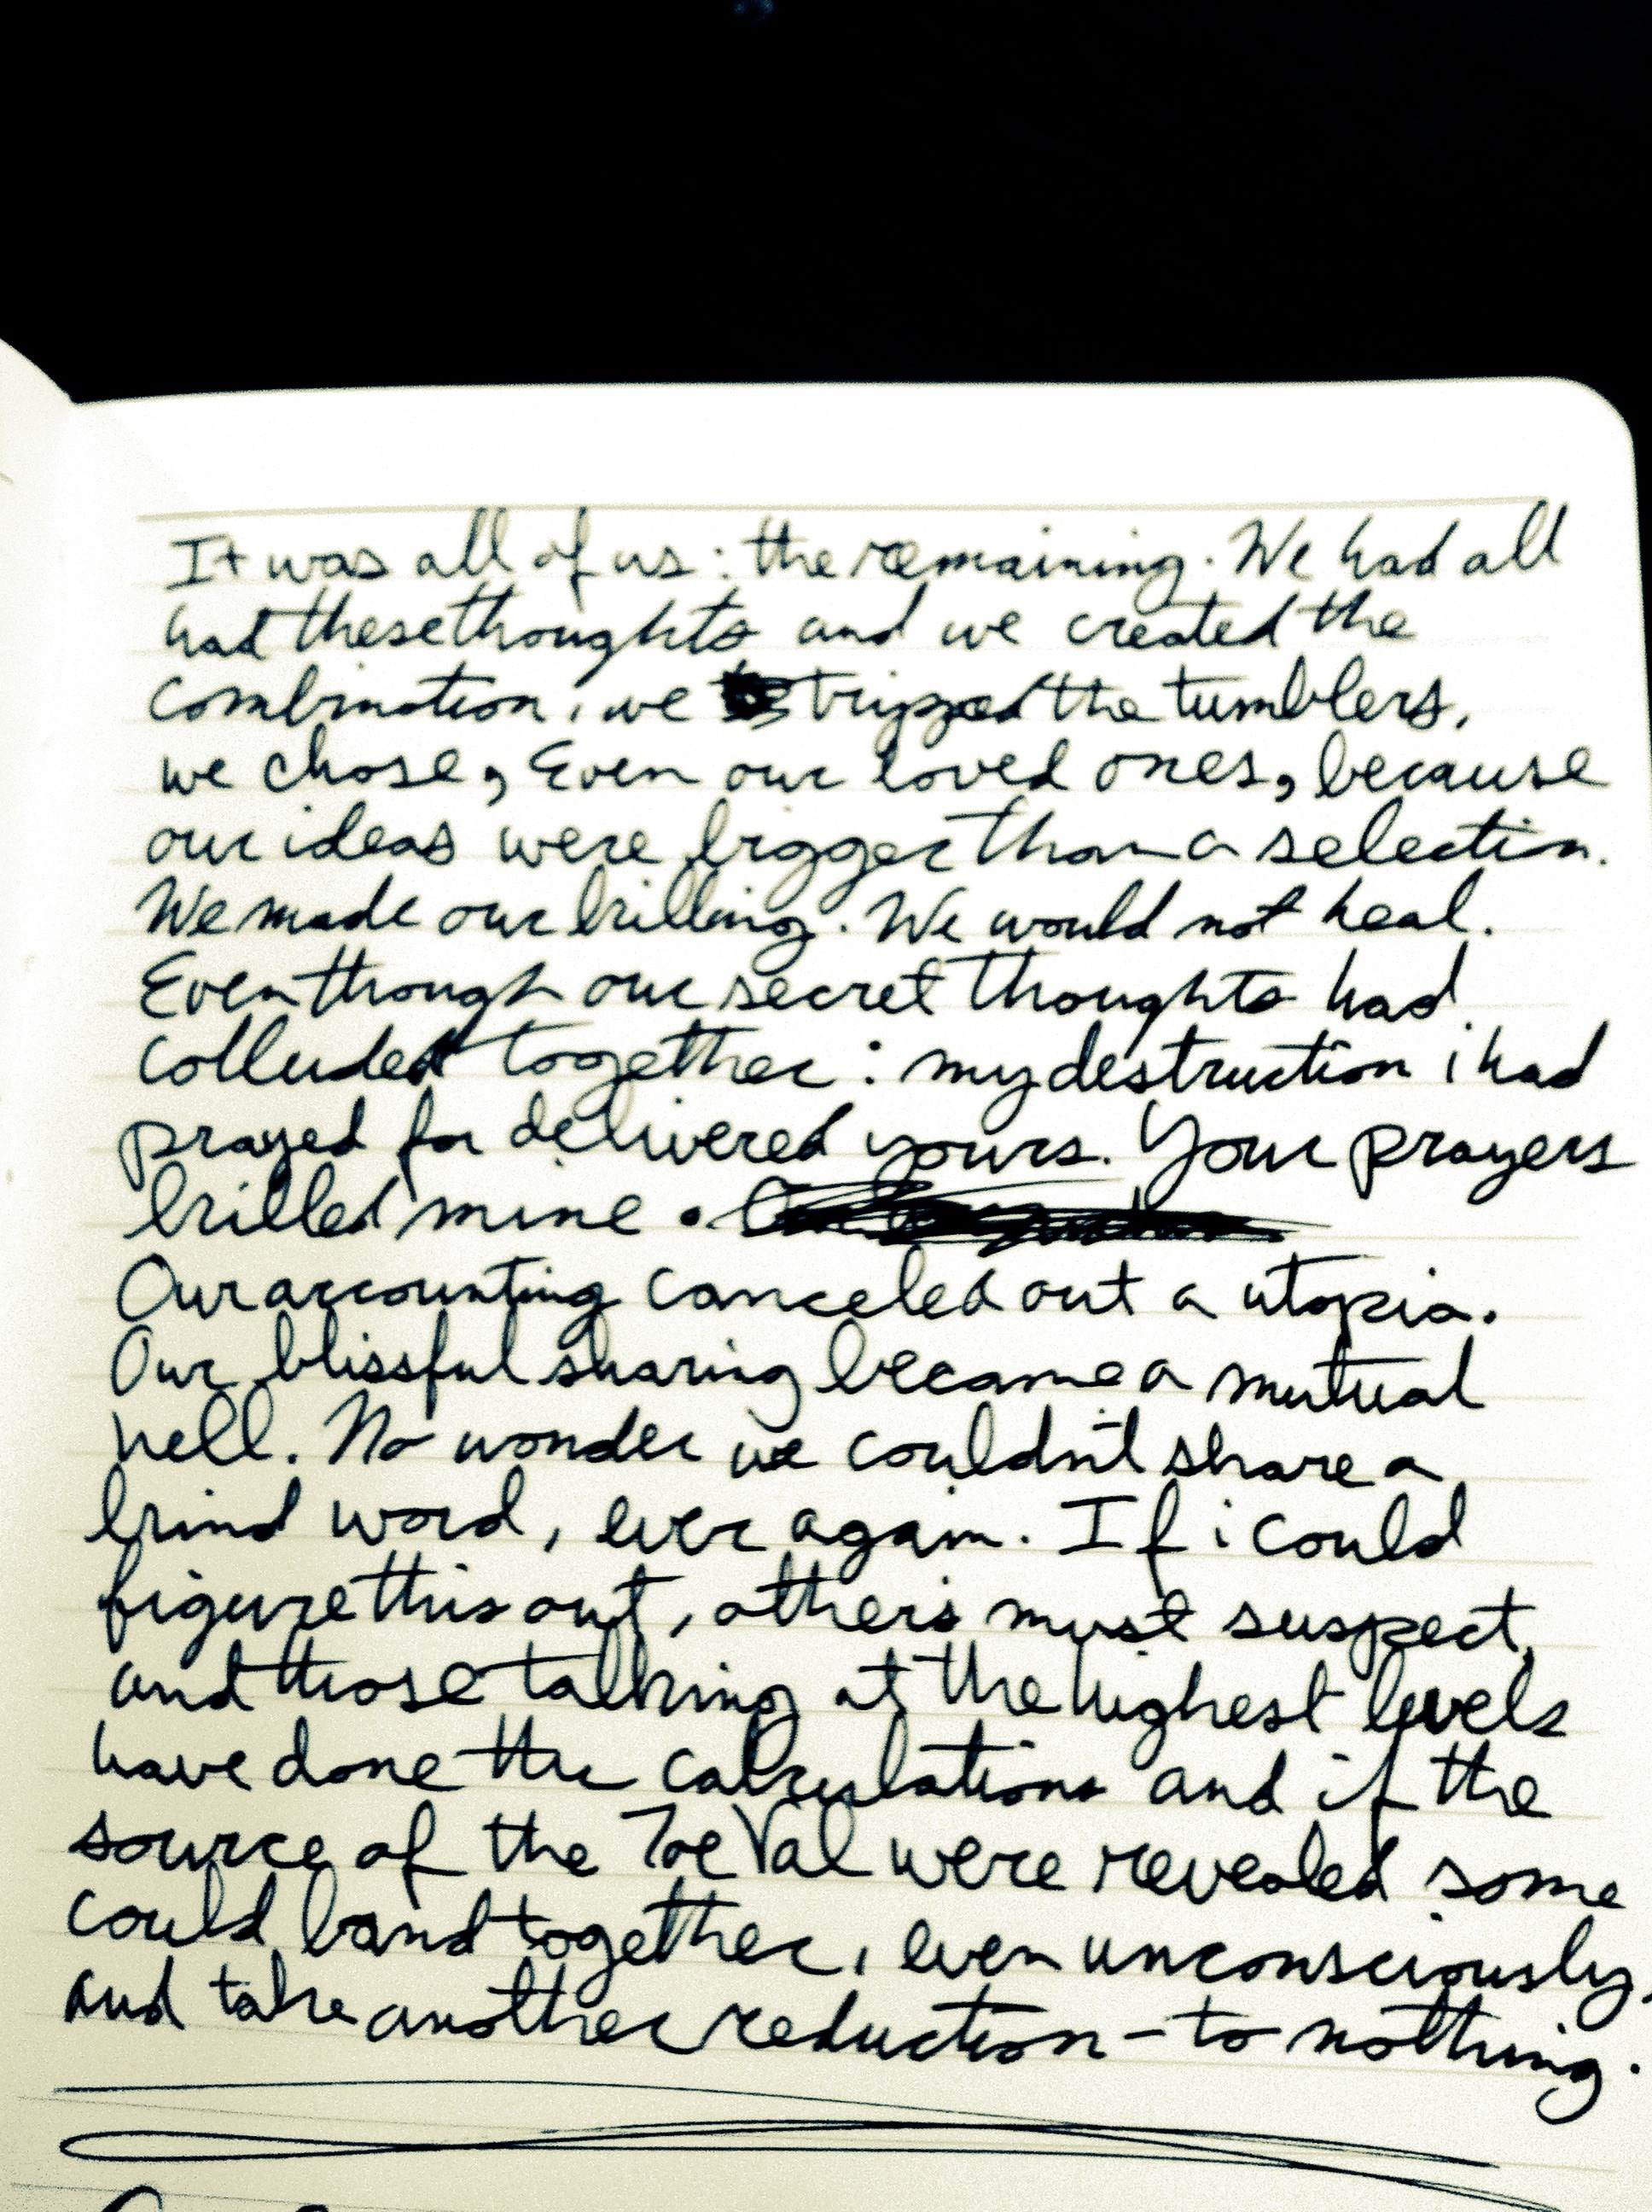 It was all of us: the remaining. We had all
had these thoughts and we created the
combination, we tripped the tumblers,
we chose, Even our loved ones, because
our ideas were bigger than a selection.
We made our killing. We would not heal.
Even though our secret thoughts had
colluded together: my destruction i had
prayed for delivered yours. Your prayers
killed mine.
Our accounting canceled out a utopia.
Our blissful sharing became a mutual
hell. No wonder we couldn't share a
kind word, ever again. If i could
figure this out, others must suspect,
and those talking at the highest levels
have done the calculations and if the
source of the Toe Val were revealed some
could band together, even unconsciously,
and take another reduction - to nothing.